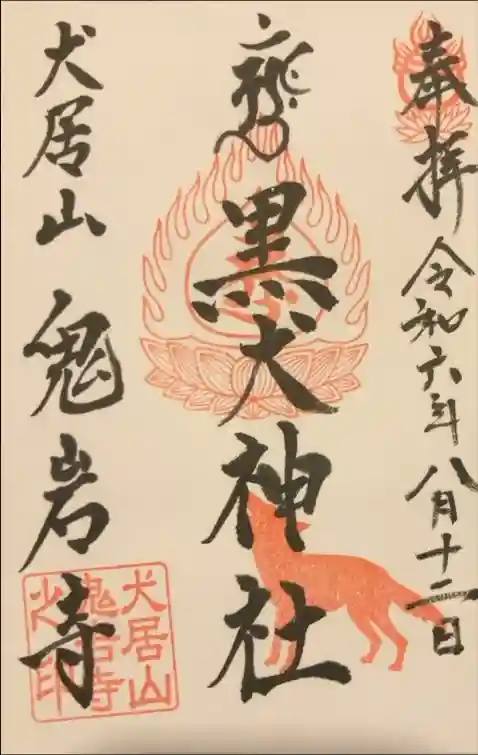 奉拝 令和六年八月十二日
黒犬神社
犬居山 鬼岩寺
犬居山
鬼岩寺
之印